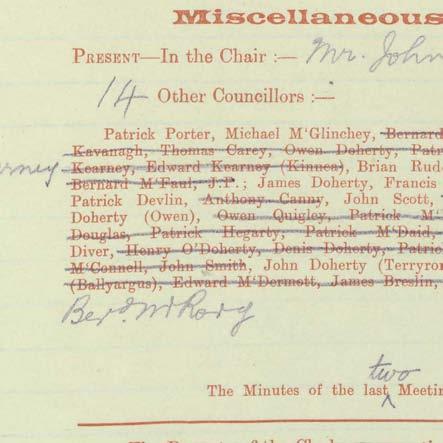 Miscellaneous
PRESENT—In the Chair :— Mr. John
14 Other Councillors :—
Patrick Porter, Michael M‘Glinchey, Bernard
Kavanagh, Thomas Carey, Owen Doherty, Patr
Kearney, Edward Kearney (Kinnea), Brian Rud
Bernard M‘Faul, J.P.; James Doherty, Francis
Patrick Devlin, Anthony Canny, John Scott,
Doherty (Owen), Owen Quigley, Patrick M‘
Douglas, Patrick Hegarty, Patrick M‘Daid,
Diver, Henry O’Doherty, Denis Doherty, Patric
M‘Connell, John Smith, John Doherty (Terryro
(Ballyargus), Edward M‘Dermott, James Breslin,
two
The Minutes of the last Meetin